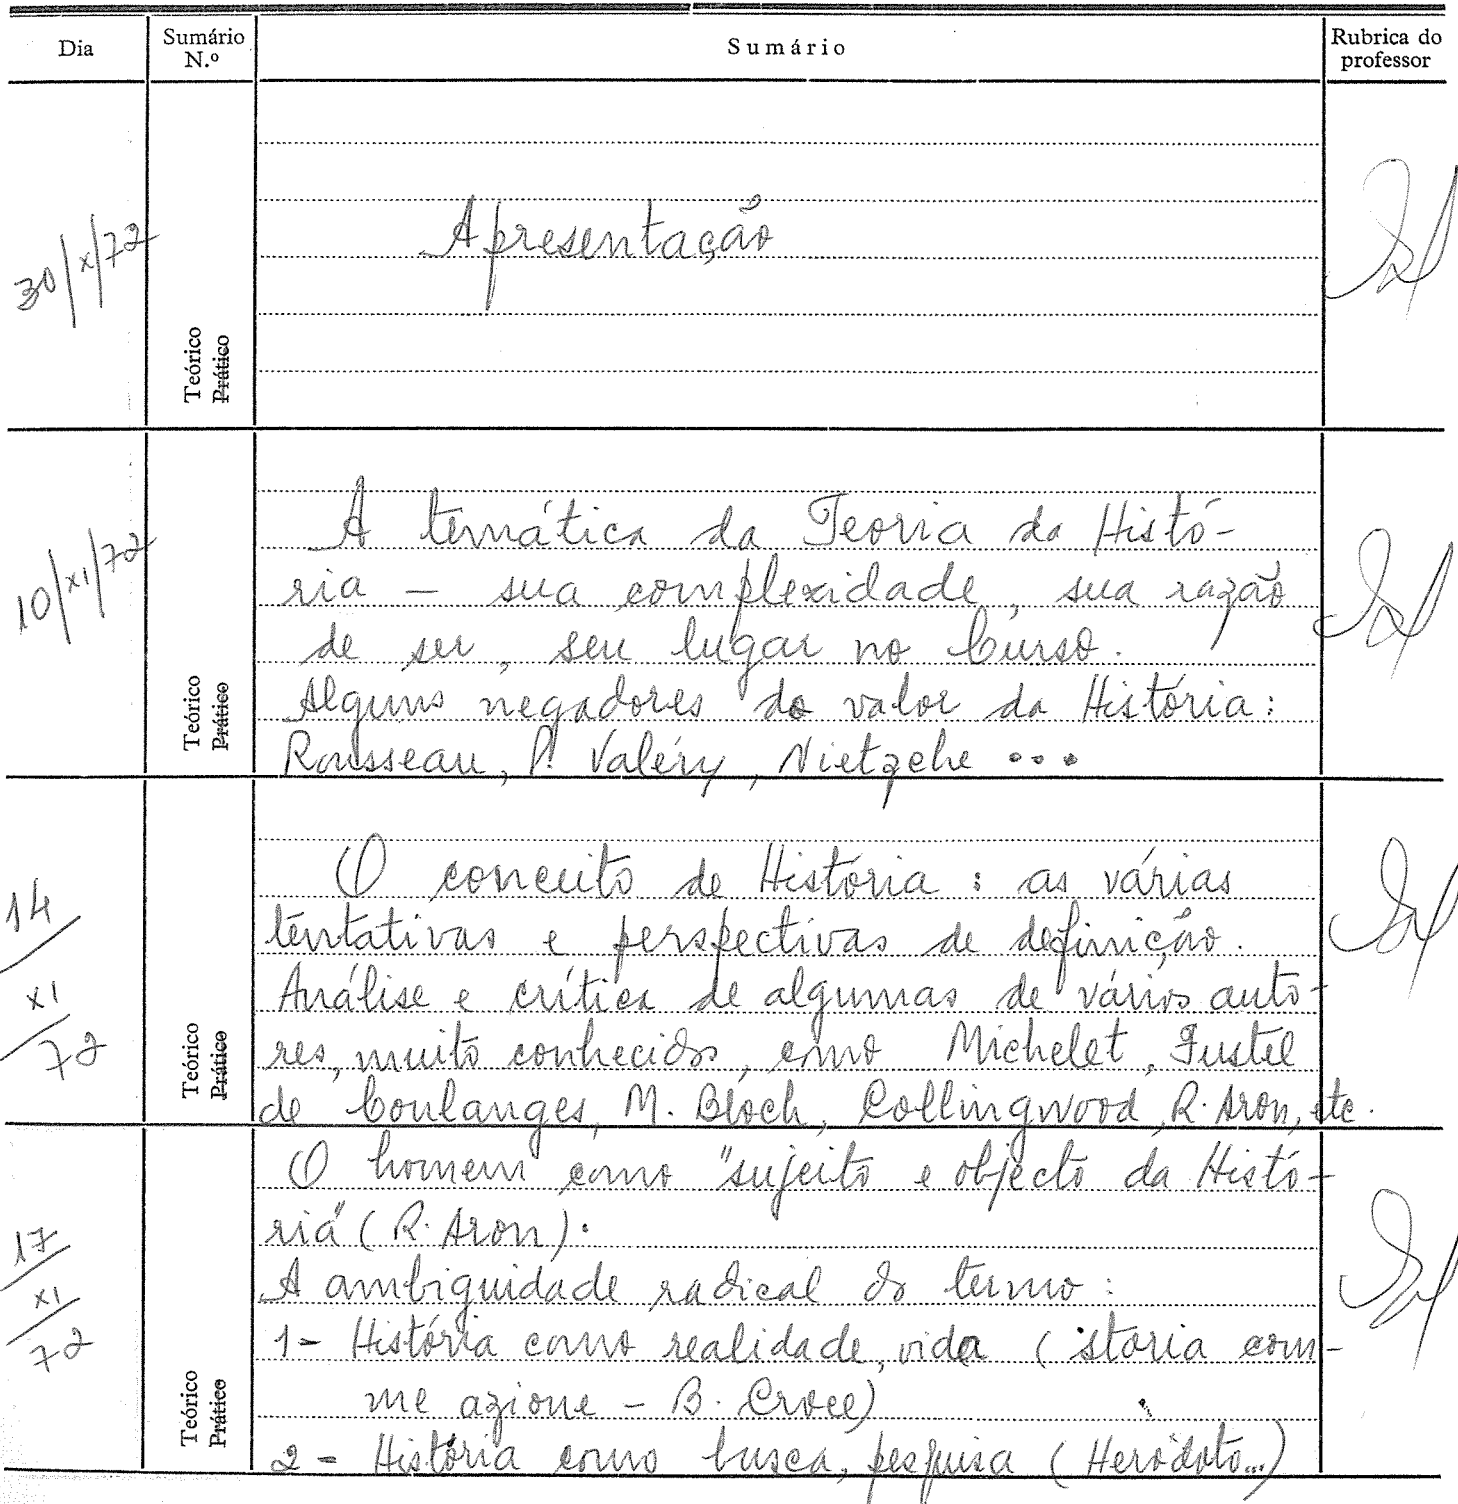 Dia
Sumário
N.º
Sumário
Rubrica do
professor
30/X/72
Teórico
Prático
Apresentação
10/XI/72
Teórico
Prático
A temática da Teoria da Histó-
ria – sua complexidade, sua razão
de ser, seu lugar no Curso.
Alguns negadores do valor da História:
Rousseau, P. Valéry, Nietzche ...
14
XI
72
Teórico
Prático
O conceito de História : as várias
tentativas e perspectivas de definição.
Análise e crítica de algumas de vários auto-
res, muito conhecidos, como Michelet, Fustel
de Coulanges, M. Bloch, Collingwood, R. Aron, etc.
17
XI
72
Teórico
Prático
O homem como "sujeito e objecto da Histó-
ria" (R. Aron).
A ambiguidade radical do termo :
1 - História como realidade, vida ( storia com-
me azione - B. Croce)
2 - História como busca, pesquisa ( Heródoto...)